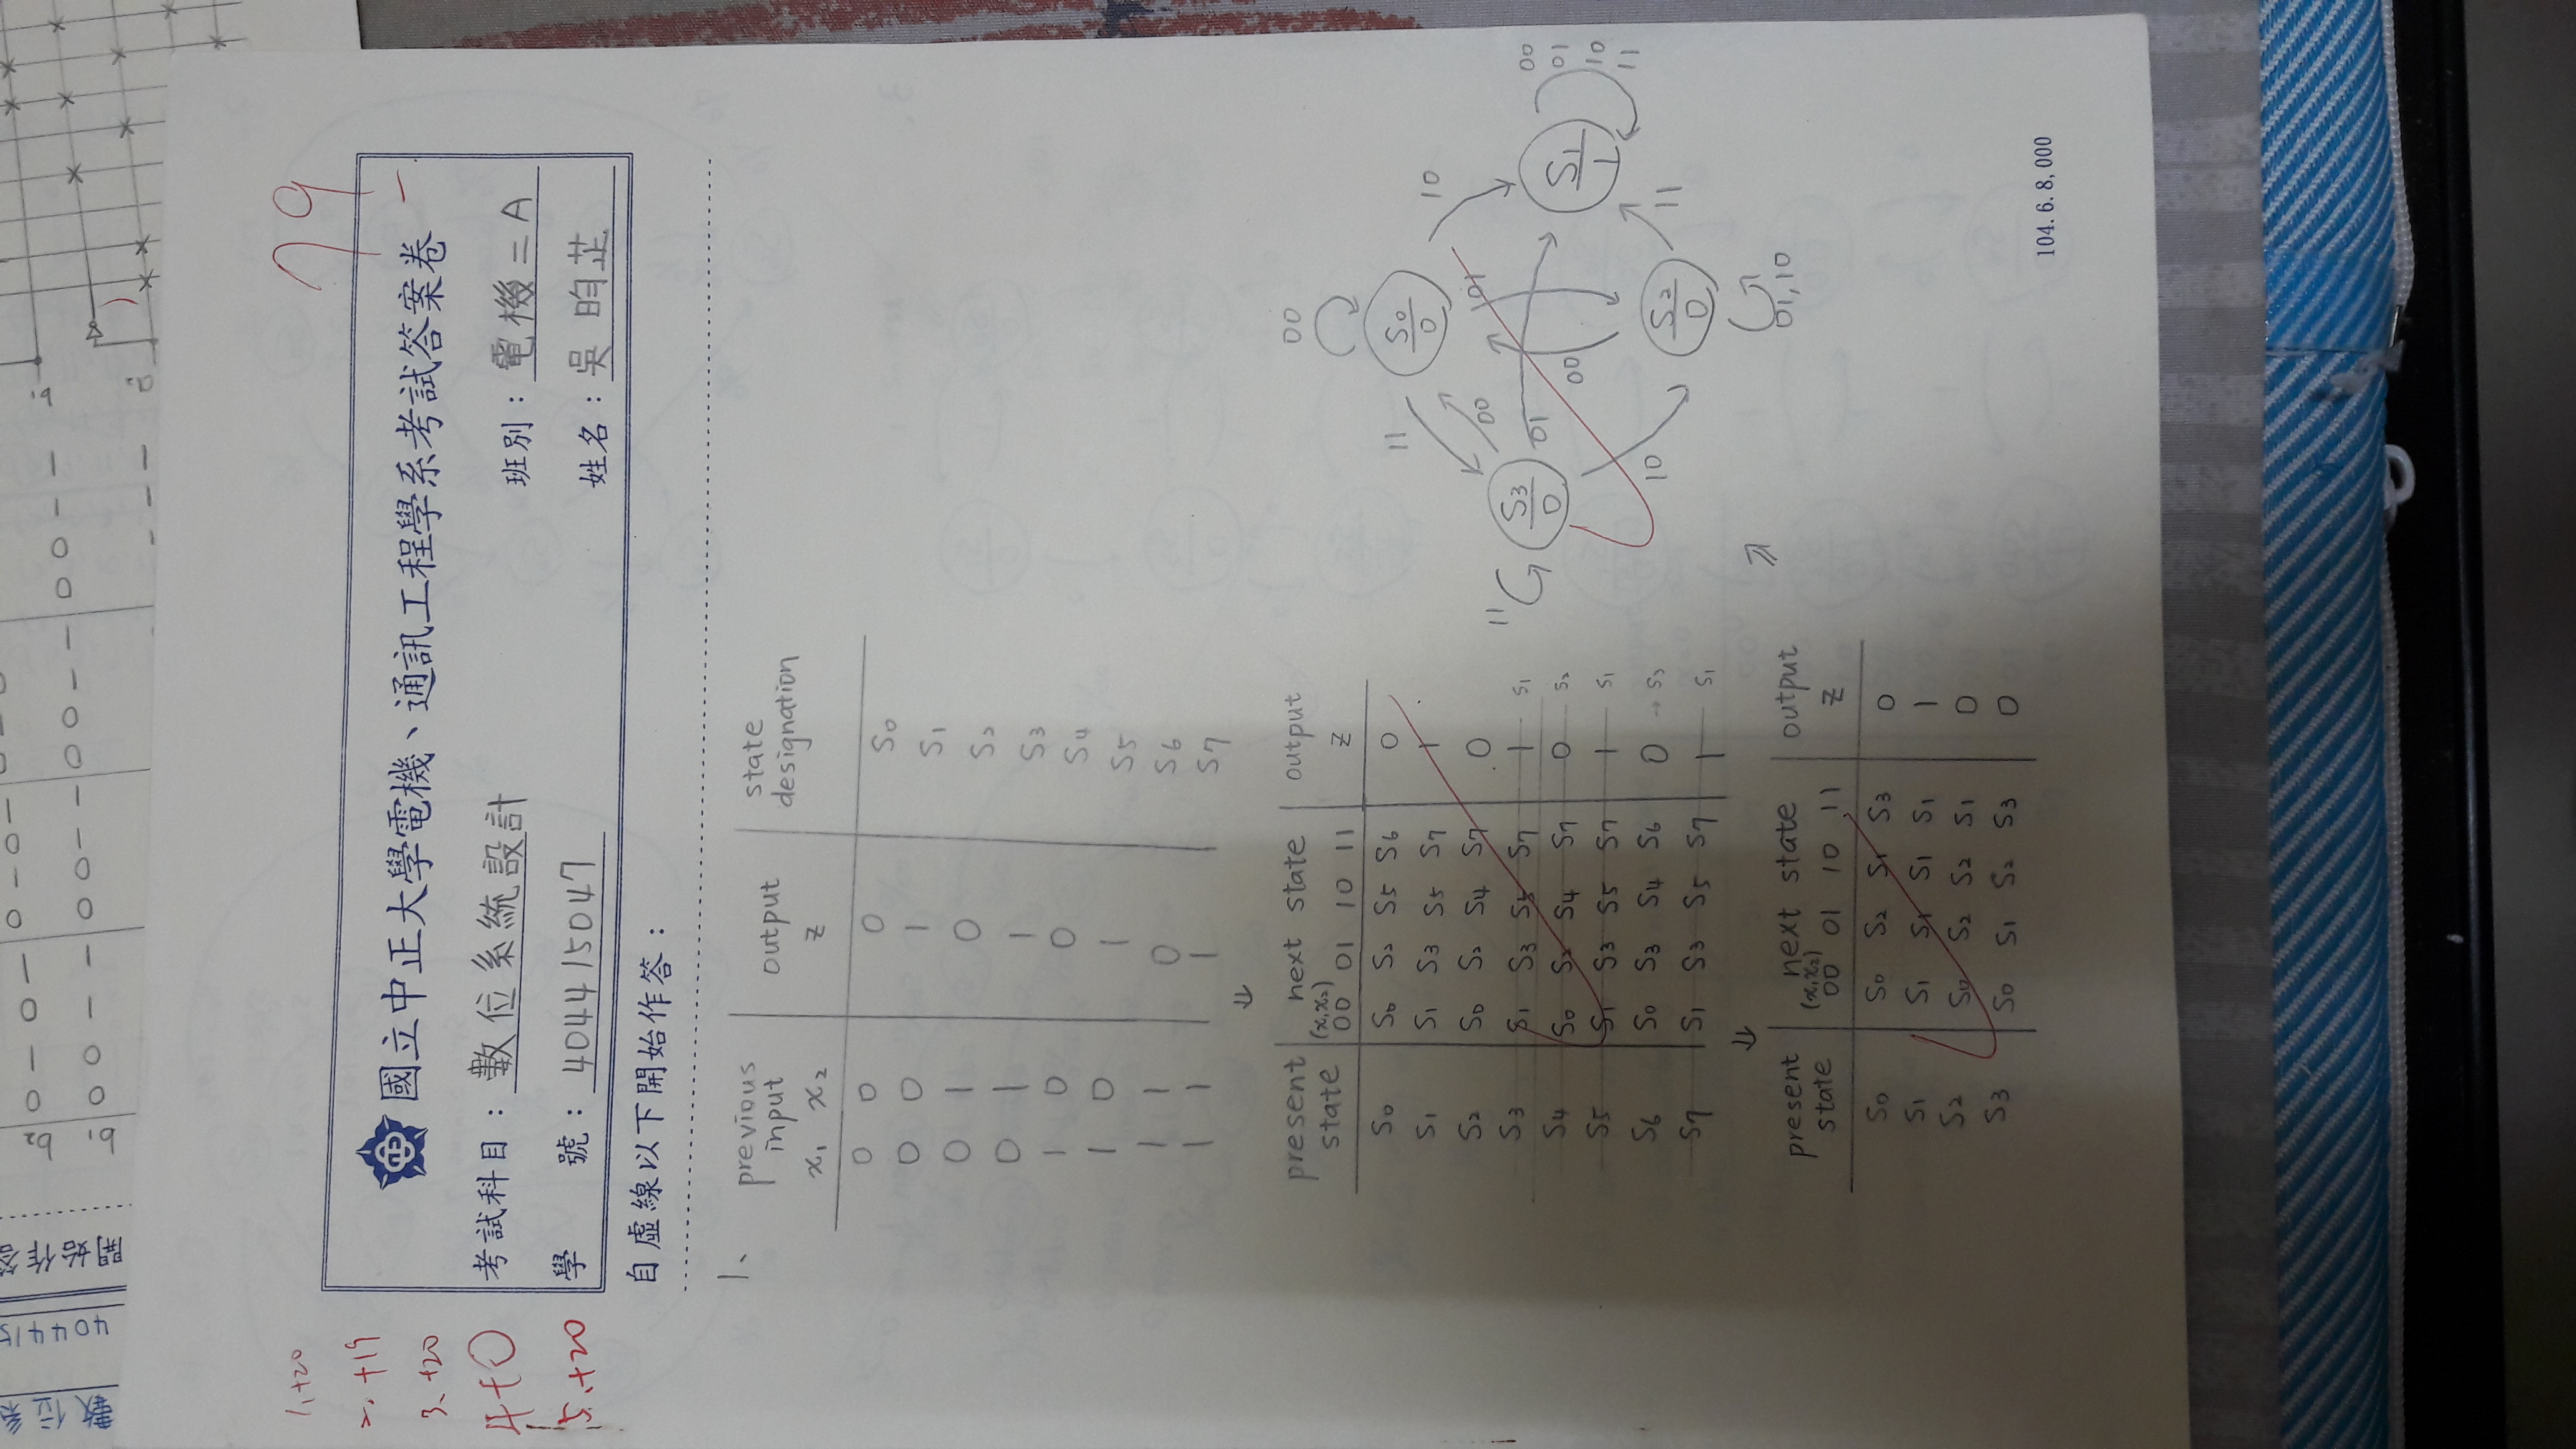 數位系
404415
開始作答
b₂ 0 1 0 1 0 1 0 1
b₁ 0 0 1 1 0 0 1 1 0 0 1 1 0 0 1 1
1、+20
2、+19
3、+20
4+0
5、+20
79
國立中正大學電機、通訊工程學系考試答案卷
考試科目：數位系統設計
班別：電機二A
學 號：404415047
姓名：吳昀芷
自虛線以下開始作答：
1、
previous input output state designation
x₁ x₂ z
0 0 0 S₀
0 0 1 S₁
0 1 0 S₂
0 1 1 S₃
1 0 0 S₄
1 0 1 S₅
1 1 0 S₆
1 1 1 S₇
⇓
present state next state output
(x₁x₂) 00 01 10 11 z
S₀ S₀ S₂ S₅ S₆ 0
S₁ S₁ S₃ S₅ S₇ 1
S₂ S₀ S₂ S₄ S₇ 0
S₃ S₁ S₃ S₅ S₇ 1 S₁
S₄ S₀ S₂ S₄ S₇ 0 S₂
S₅ S₁ S₃ S₅ S₇ 1 S₁
S₆ S₀ S₃ S₄ S₆ 0 → S₃
S₇ S₁ S₃ S₅ S₇ 1 S₁
⇓
present state next state output
(x₁x₂) 00 01 10 11 z
S₀ S₀ S₂ S₁ S₃ 0
S₁ S₁ S₁ S₁ S₁ 1
S₂ S₀ S₂ S₂ S₁ 0
S₃ S₀ S₁ S₂ S₃ 0
00
S₀
0
11
10
00
01
11
S₃
0
01
00
S₁
1
00
01
10
11
10
S₂
0
11
01,10
104.6.8,000